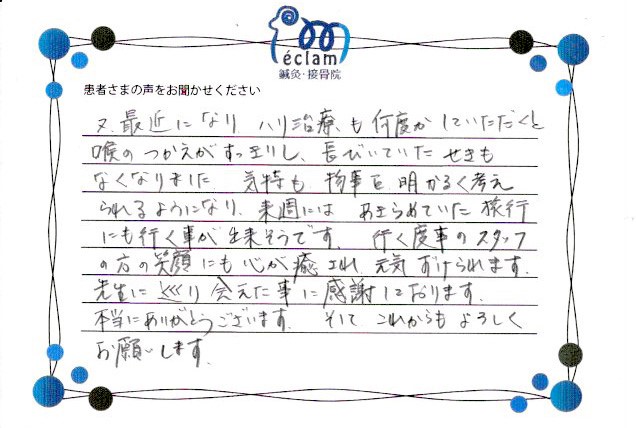 éclam
鍼灸・接骨院
患者さまの声をお聞かせください
又、最近になり ハリ治療も何度かしていただくと
喉のつかえがすっきりし、長びいていた せきも
なくなりました 気持も 物事を 明かるく考え
られるようになり、来週には あきらめていた 旅行
にも行く事が出来そうです。 行く度事の スタッフ
の方の笑顔にも心が 癒され 元気 ずけられます。
先生に めぐり会えた事に感謝しております。
本当にありがとうございます。 そして これからも よろしく
お願いします。